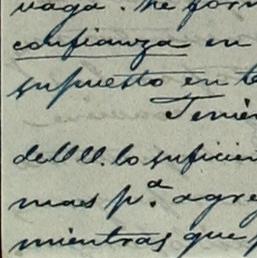 vaga. he for
confianza en
supuesto en
Tenie
de UU. lo suficien
mas p.ª agre
mientras que